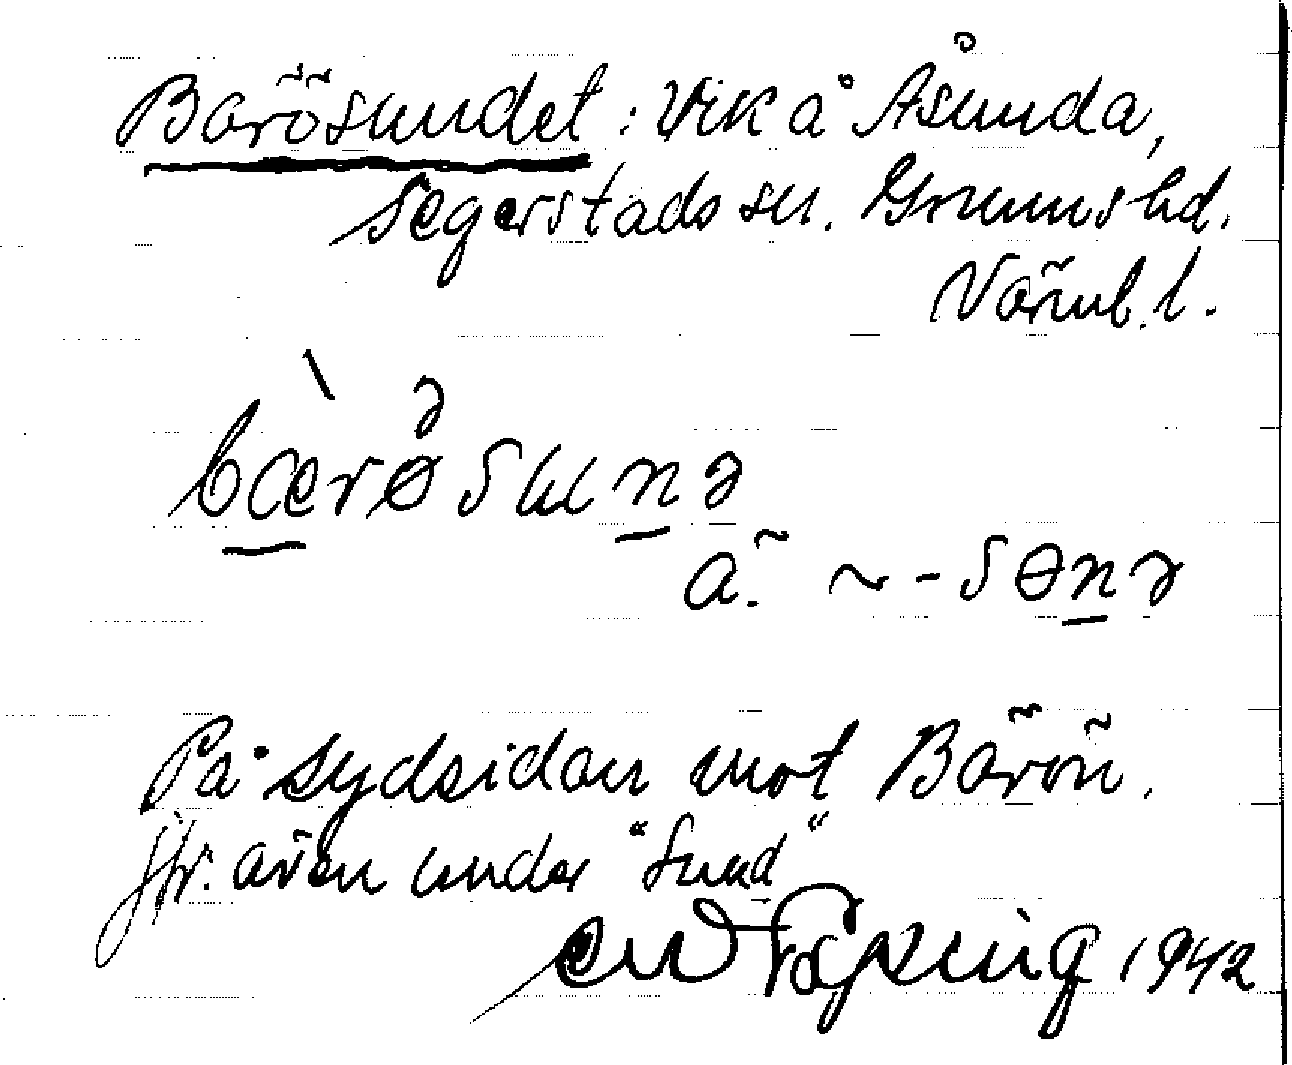 Barösundet: Vik å Åsunda,
Segerstads sn. Grums hd.
Värml. l.
bærøsunə
ä. ~ -sɵnə
På sydsidan mot Bärön.
Jfr. även under "Sund"
1942